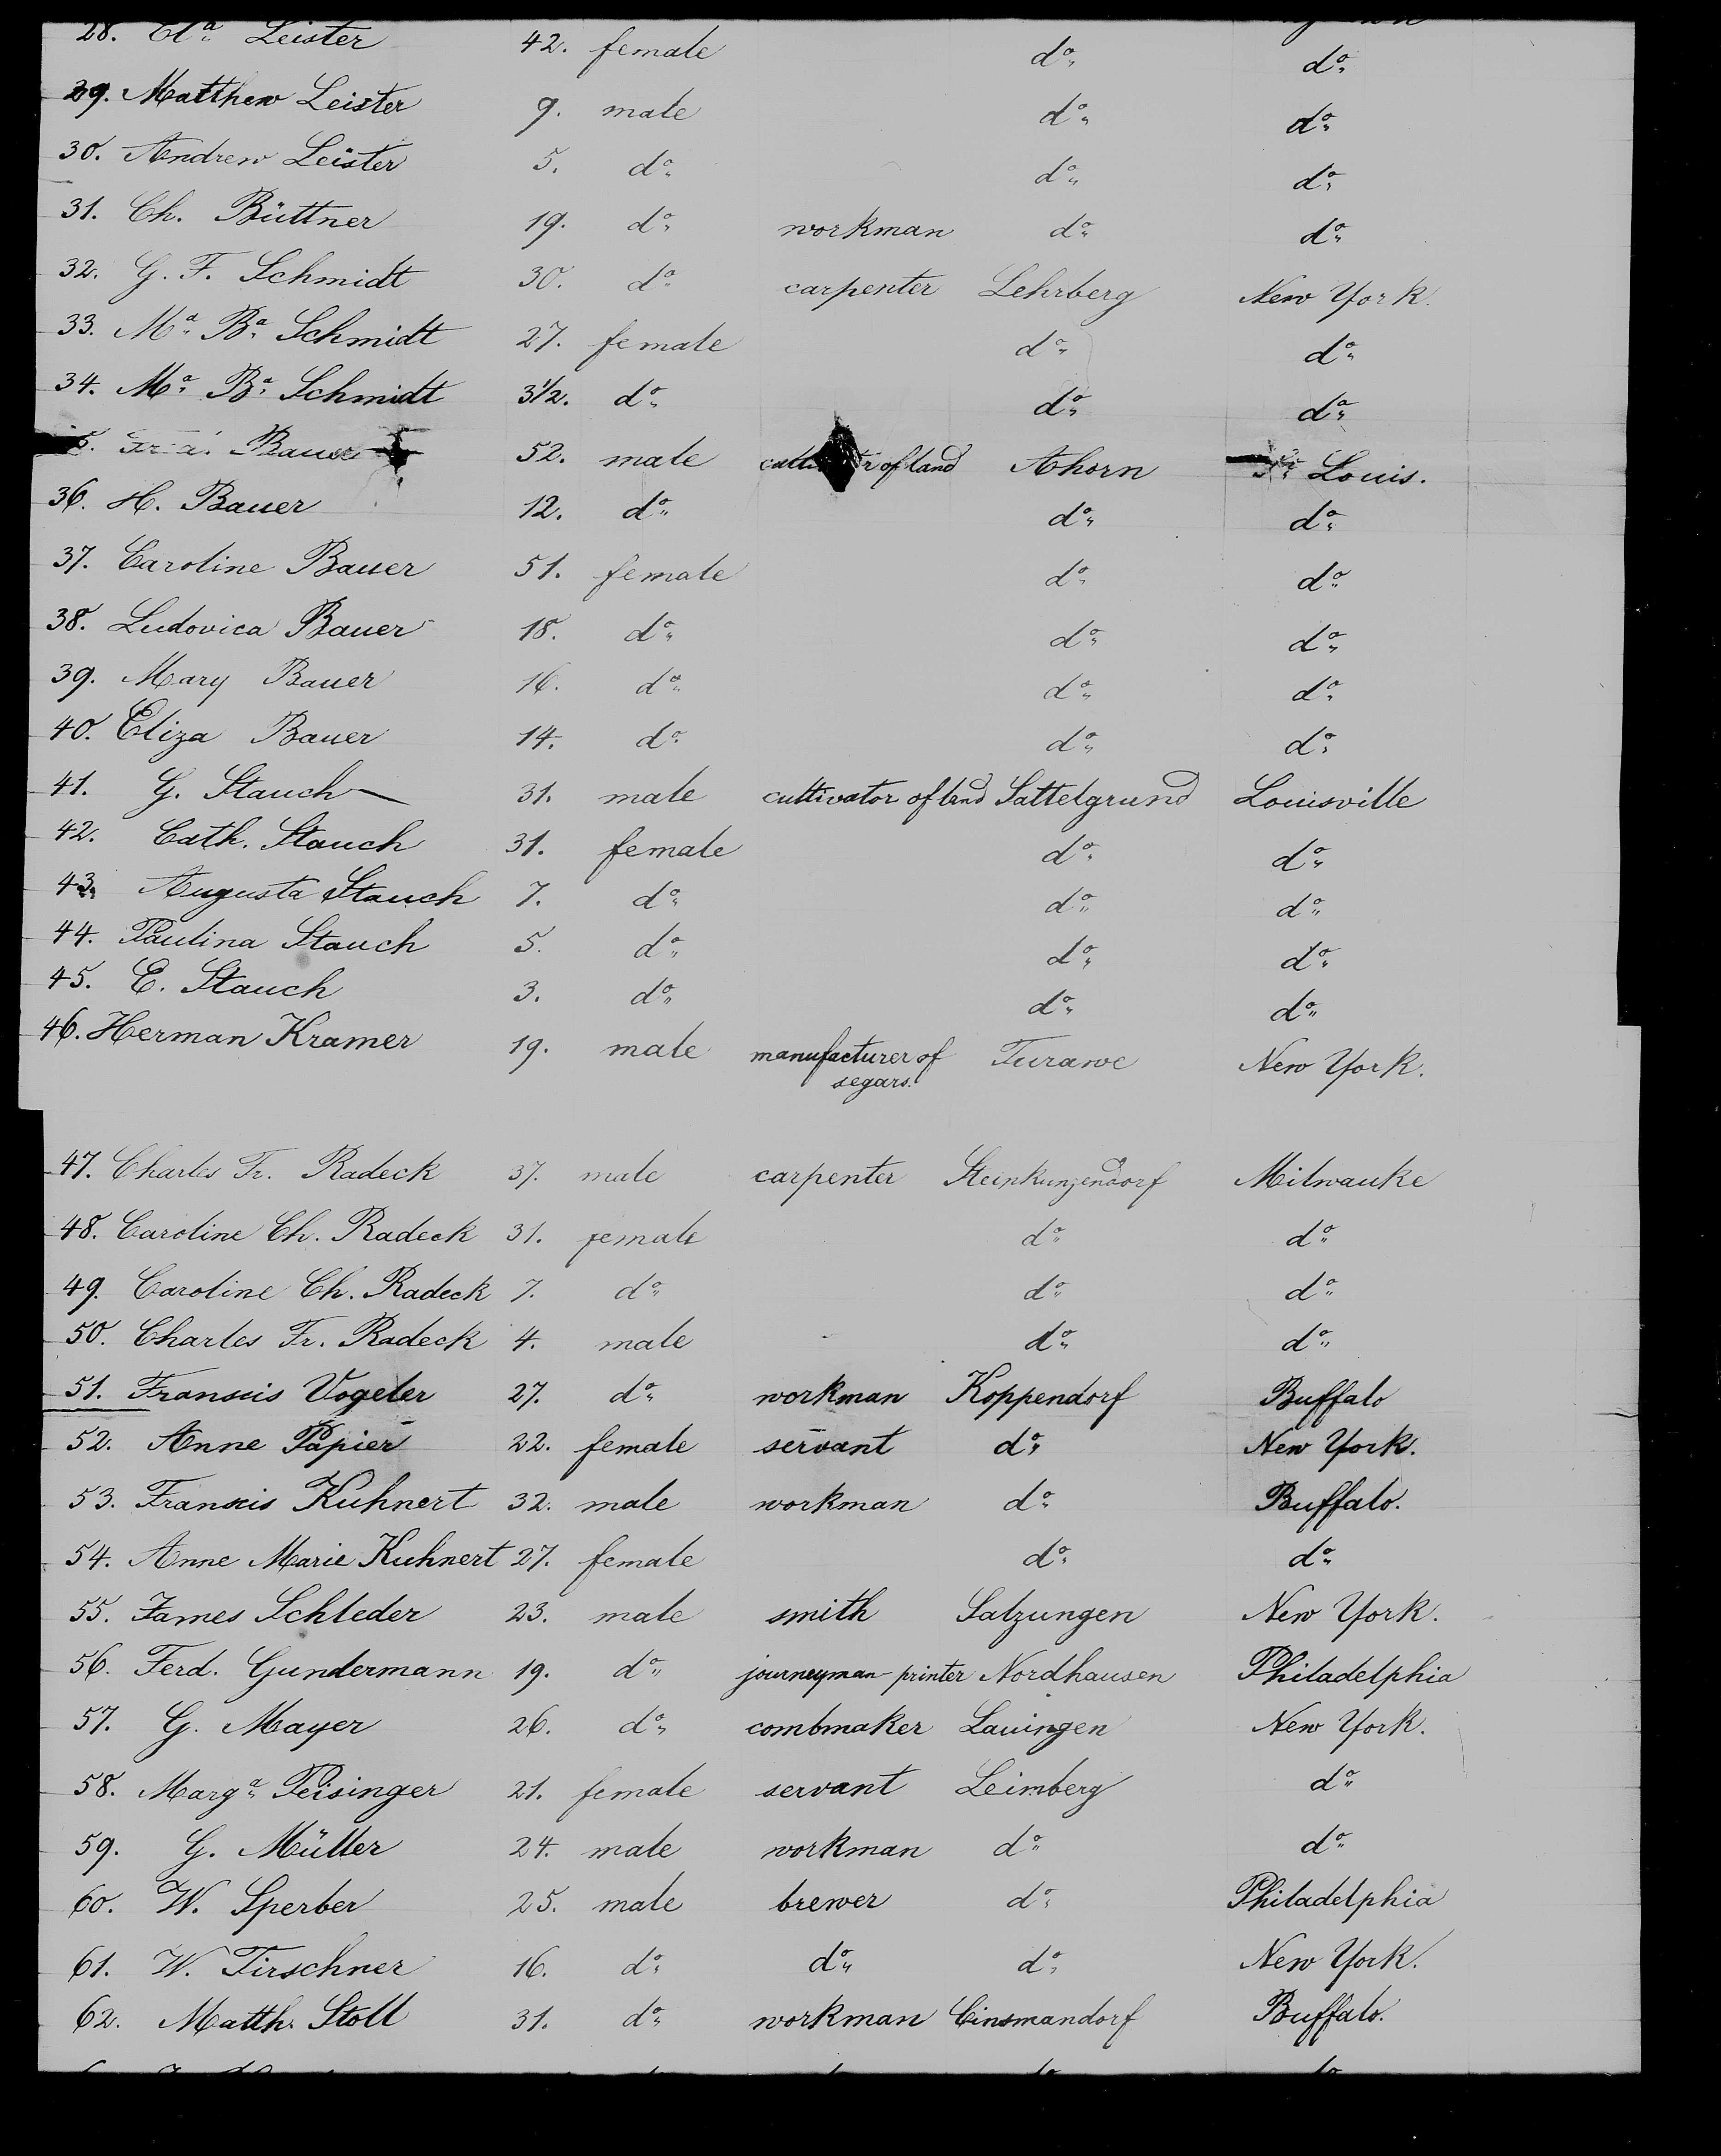 28. Ela Leister 42. female do do
29. Matthew Leister 9. male do do
30. Andrew Leister 5. do do do
31. Ch. Büttner 19. do workman do do
32. G. F. Schmidt 30. do carpenter Lehrberg New York.
33. Ma Ba Schmidt 27. female do do
34. Ma Ba Schmidt 3 1/2. do do do
5. Bauer 52. male of land Ahorn Louis.
36. H. Bauer 12. do do do
37. Caroline Bauer 51. female do do
38. Ludovica Bauer 18. do do do
39. Mary Bauer 16. do do do
40. Eliza Bauer 14. do do do
41. G. Stauch 31. male cultivator of land Sattelgrund Louisville
42. Cath. Stauch 31. female do do
43. Augusta Stauch 7. do do do
44. Paulina Stauch 5. do do do
45. E. Stauch 3. do do do
46. Herman Kramer 19. male manufacturer of Turawe New York.
segars.
47. Charles Fr. Radeck 37. male carpenter Steinkunzendorf Milwauke
48. Caroline Ch. Radeck 31. female do do
49. Caroline Ch. Radeck 7. do do do
50. Charles Fr. Radeck 4. male do do
51. Francis Vogeler 27. do workman Koppendorf Buffalo
52. Anne Papier 22. female servant do New York.
53. Francis Kuhnert 32. male workman do Buffalo.
54. Anne Marie Kuhnert 27. female do do
55. James Schleder 23. male smith Salzungen New York.
56. Ferd. Gundermann 19. do journeyman-printer Nordhausen Philadelphia
57. G. Mayer 26. do combmaker Lauingen New York.
58. Marga Peisinger 21. female servant Leimberg do
59. G. Müller 24. male workman do do
60. W. Sperber 25. male brewer do Philadelphia
61. W. Tirschner 16. do do do New York.
62. Matth. Stoll 31. do workman Cinsmandorf Buffalo.